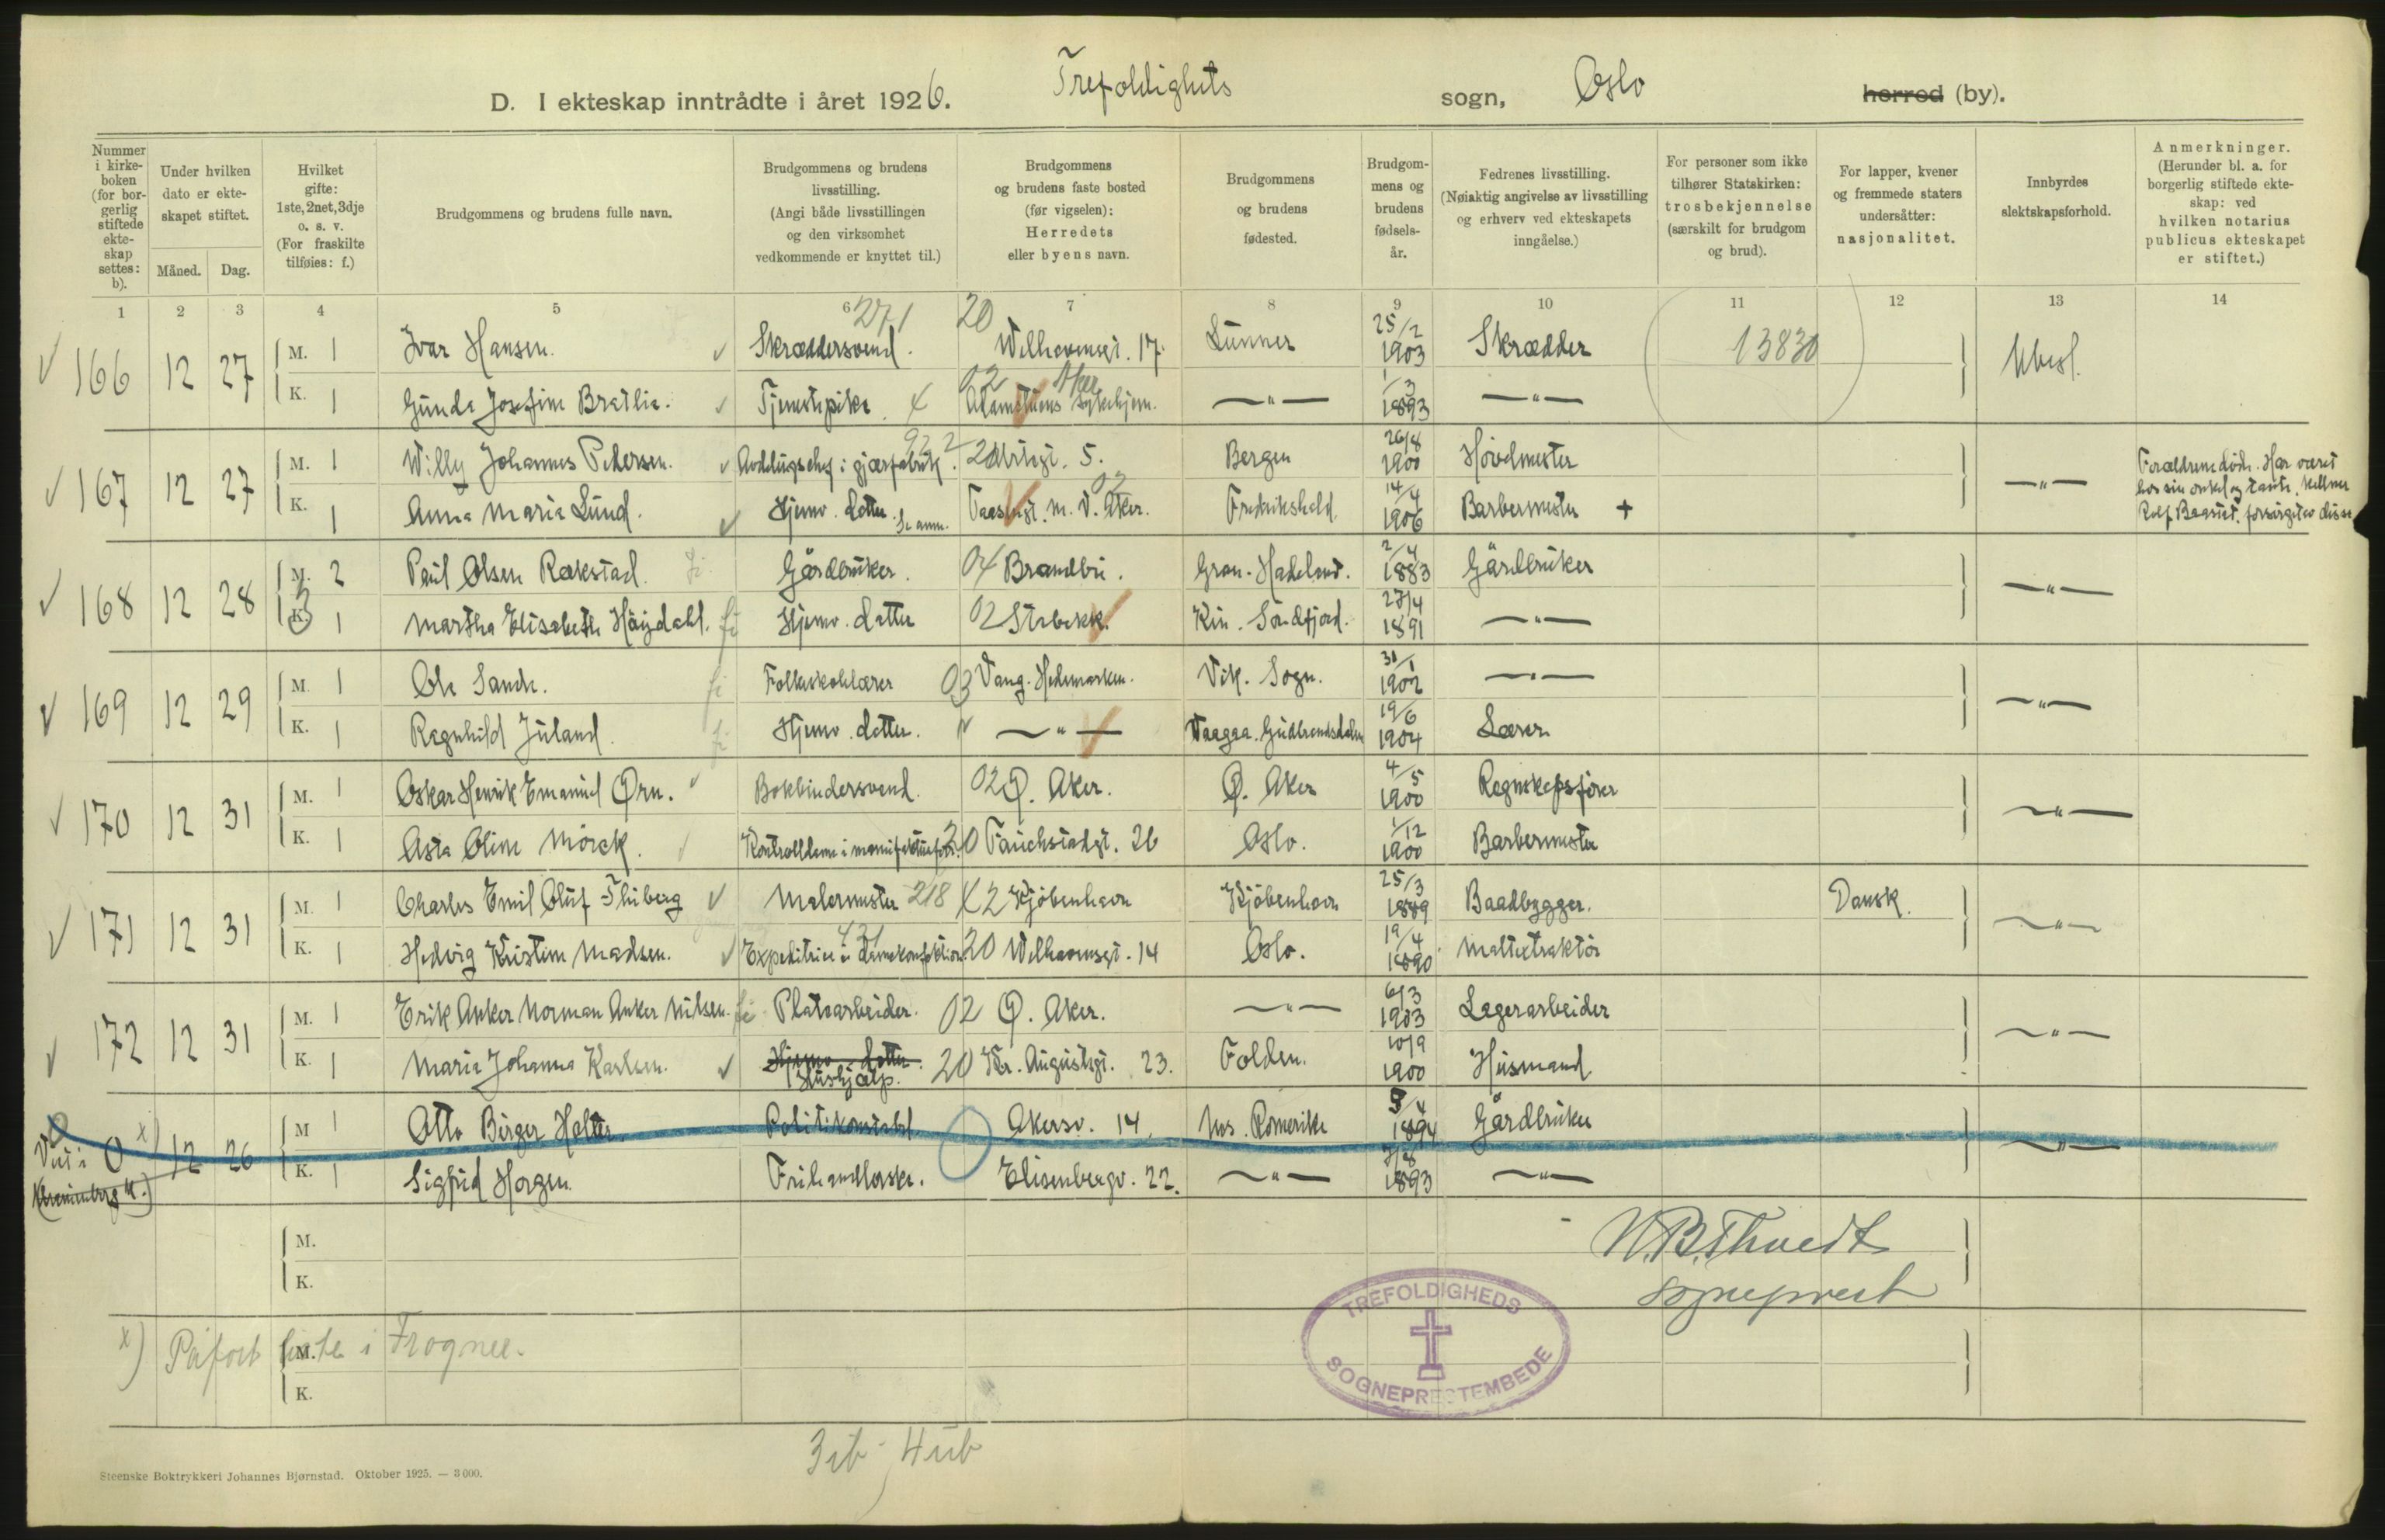 D. I ekteskap inntrådte i året 1926. Trefoldighets sogn, Oslo herred (by).
Nummer i kirke-boken (for bor-gerlig stiftede ekte-skap settes: b).
Under hvilken dato er ekte-skapet stiftet.
Måned. Dag.
Hvilket gifte: 1ste, 2net, 3dje o. s. v. (For fraskilte tilføies: f.)
Brudgommens og brudens fulle navn.
Brudgommens og brudens livsstilling. (Angi både livsstillingen og den virksomhet vedkommende er knyttet til.)
Brudgommens og brudens faste bosted (før vigselen): Herredets eller byens navn.
Brudgommens og brudens fødested.
Brudgom-mens og brudens fødsels-år.
Fedrenes livsstilling. (Nøiaktig angivelse av livsstilling og erhverv ved ekteskapets inngåelse.)
For personer som ikke tilhører Statskirken: trosbekjennelse (særskilt for brudgom og brud).
For lapper, kvener og fremmede staters undersåtter: nasjonalitet.
Innbyrdes slektskapsforhold.
Anmerkninger. (Herunder bl. a. for borgerlig stiftede ekte-skap: ved hvilken notarius publicus ekteskapet er stiftet.)
1 2 3 4 5 6 7 8 9 10 11 12 13 14
271 20
166 12 27 M. 1 Ivar Hansen. Skræddersvend. Welhavensgt. 17. Lunner 25/2 1903 Skrædder 13830 Ubesl.
K. 1 Gunda Josefine Bratlie. Tjenestepike 02 Aker sykehjem. —"— 1/3 1893 —"—
167 12 27 M. 1 Willy Johannes Pedersen. Avdelingschef i gjærfabrik. 5. Bergen 26/8 1900 Hovedmester —"— Forældrene døde. Har været
K. 1 Anna Maria Lund. Hjemv. datter. Se anm. m. V. Aker. 02 Fredrikshald 14/4 1906 Barbermester + hos sin onkel og tante. Kellner
Rolf forsørget av disse
168 12 28 M. 2 Paul Olsen Rækstad. Gårdbruker. 04 Brandbu. Gran. Hadeland. 2/4 1883 Gårdbruker —"—
K. 1 Martha Elisabeth Høydahl. Hjemv. datter 02 Stabekk. Kin. Søndfjord. 27/4 1891 —"—
169 12 29 M. 1 Ole Sande. Folkeskolelærer 03 Vang. Hedemarken. Vik. Sogn. 31/1 1902 —"— —"—
K. 1 Ragnhild Juland. Hjemv. datter. —"— Vaagaa. Gudbrandsdalen 19/6 1904 Lærer
170 12 31 M. 1 Oskar Henrik Emanuel Ørn. Bokbindersvend. 02 Ø. Aker. Ø. Aker 4/5 1900 Regnskapsfører —"—
K. 1 Asta Oline Mörck. Kontrolldame i 20 Fauchaldgt. 26 Oslo. 1/12 1900 Barbermester
171 12 31 M. 1 Charles Emil Oluf Thuberg Malermester 218 X2 Kjöbenhavn Kjöbenhavn 25/3 1889 Baadbygger. Dansk. —"—
K. 1 Hedvig Kristine Madsen. Expeditrice i damekonfektion 431 20 Welhavensgt. 14 Oslo. 19/4 1890
172 12 31 M. 1 Erik Anker Norman Anker Nilsen. Platearbeider. 02 Ø. Aker. —"— 6/3 1903 Lagerarbeider —"—
K. 1 Maria Johanna Karlsen. Hjemv. datter. Hushjælp. 20 Kr. Augustsgt. 23. Folden. 10/9 1900 Husmand
0 x) 12 26 M 1 Otto Birger Holter. Politikonstabel. Akersv. 14. Nes. Romerike 3/4 1894 Gårdbruker —"—
Viet i
K. 1 Sigfrid Horgen. Frihandlerske. Elisenbergv. 22. —"— 7/8 1893 —"—
M.
K.
sogneprest
x) Påført liste i Frogner.
M.
K.
TREFOLDIGHEDS SOGNEPRESTEMBEDE
3 ib 4 ub
Steenske Boktrykkeri Johannes Bjørnstad. Oktober 1925. — 3 000.